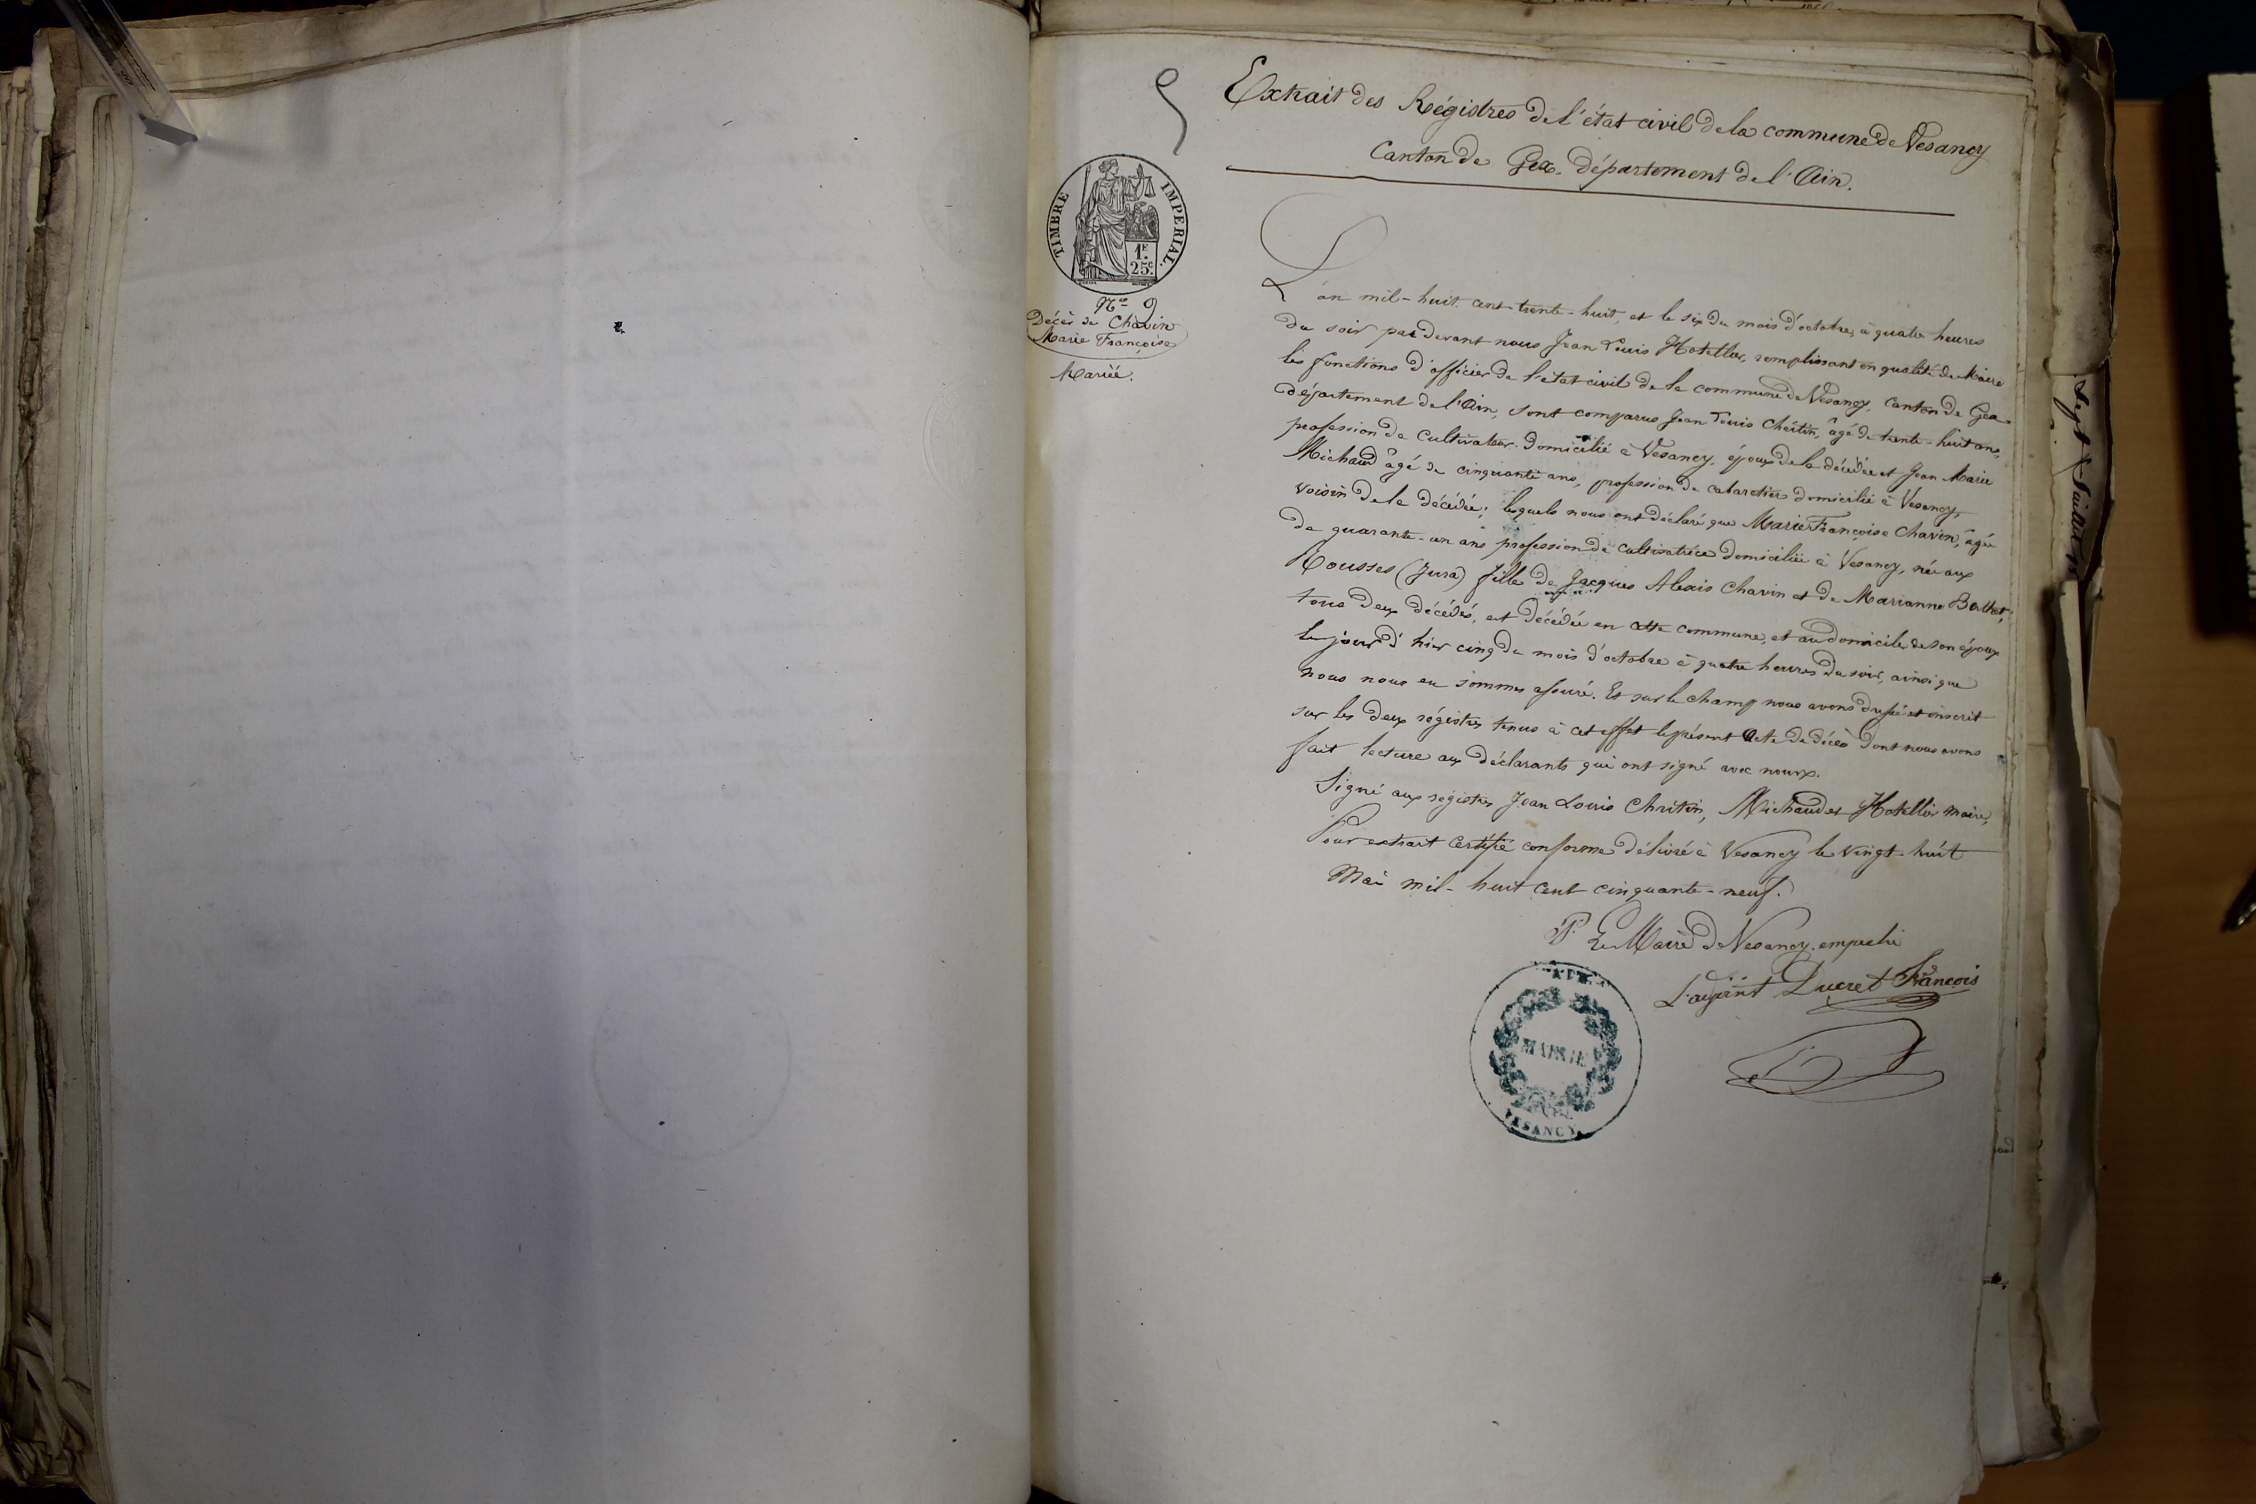 Extrait des Régistres de l'état civil de la commune de Vesancy
Canton de Gex. département de l'Ain.
TIMBRE IMPERIAL.
1F
25c
No 9
Décès de Chavin
Marie Françoise
Mariée.
L'an mil-huit cent-trente-huit, et le six du mois d'octobre, à quatre heures
du soir par devant nous Jean Louis Hotellier, remplissant en qualité de Maire
les fonctions d'officier de l'état civil de la commune de Vesancy, canton de Gex
département de l'Ain, sont comparus Jean Louis Chritin, âgé de trente-huit ans,
profession de cultivateur domicilié à Vesancy, époux de la décédée et Jean Marie
Michaud âgé de cinquante ans, profession de cabaretier domicilié à Vesancy,
voisin de la décédée; lesquels nous ont déclaré que Marie Françoise Chavin, âgée
de quarante-un ans profession de cultivatrice domiciliée à Vesancy, née aux
Rousses (Jura) fille de Jacques Alexis Chavin et de Marianne
tous deux décédés, est décédée en cette commune, et au domicile de son époux
le jour d'hier cinq du mois d'octobre à quatre heures du soir, ainsi que
nous nous en sommes assuré. Et sur le champ nous avons dressé et inscrit
sur les deux régistres tenus à cet effet le présent acte de décès dont nous avons
fait lecture aux déclarants qui ont signé avec nous.
Signé aux régistres Jean Louis Chritin, Michaud et Hotellier maire,
Pour extrait certifié conforme délivré à Vesancy le vingt-huit
Mai mil-huit cent cinquante-neuf.
P. Le Maire de Vesancy empeché
L'adjoint Ducret François
MAIRIE
VESANCY
Sept Juillet